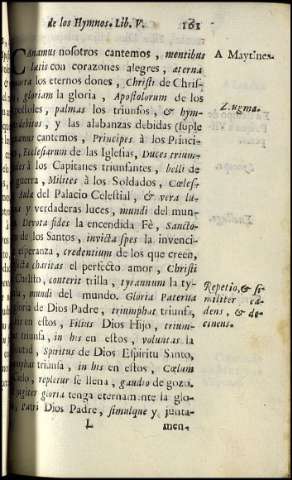 de los Hymnos. Lib. V. 161
Canamus nosotros cantemos, mentibus
lætis con corazones alegres, æterna
los eternos dones, Christi de Chris-
gloriam la gloria, Apostolorum de los
palmas los triunfos, & hym-
debitos, y las alabanzas debidas (suple
cantemos, Principes à los Princi-
Ecclesarum de las Iglesias, Duces trium-
à los Capitanes triunfantes, belli de
guerra, Milites à los Soldados, Cœles-
Aula del Palacio Celestial, & vera lu-
y verdaderas luces, mundi del mun-
Devota fides la encendida Fè, Sancto-
de los Santos, invicta spes la invenci-
esperanza, credentium de los que creen,
charitas el perfecto amor, Christi
conterit trilla, tyrannum la ty-
mundi del mundo. Gloria Paterna
de Dios Padre, triumphat triunfa,
in his en estos, Filius Dios Hijo, trium-
triunfa, in his en estos, voluntas la
Spiritus de Dios Espiritu Santo,
triunfa, in his en estos, Cœlum
repletur se llena, gaudio de gozo.
gloria tenga eternamente la glo-
Patri Dios Padre, simulque y junta-
L men-
A Maytines.
Zeugma.
Repetio, & si-
militer ca-
dens, & de-
cinens.